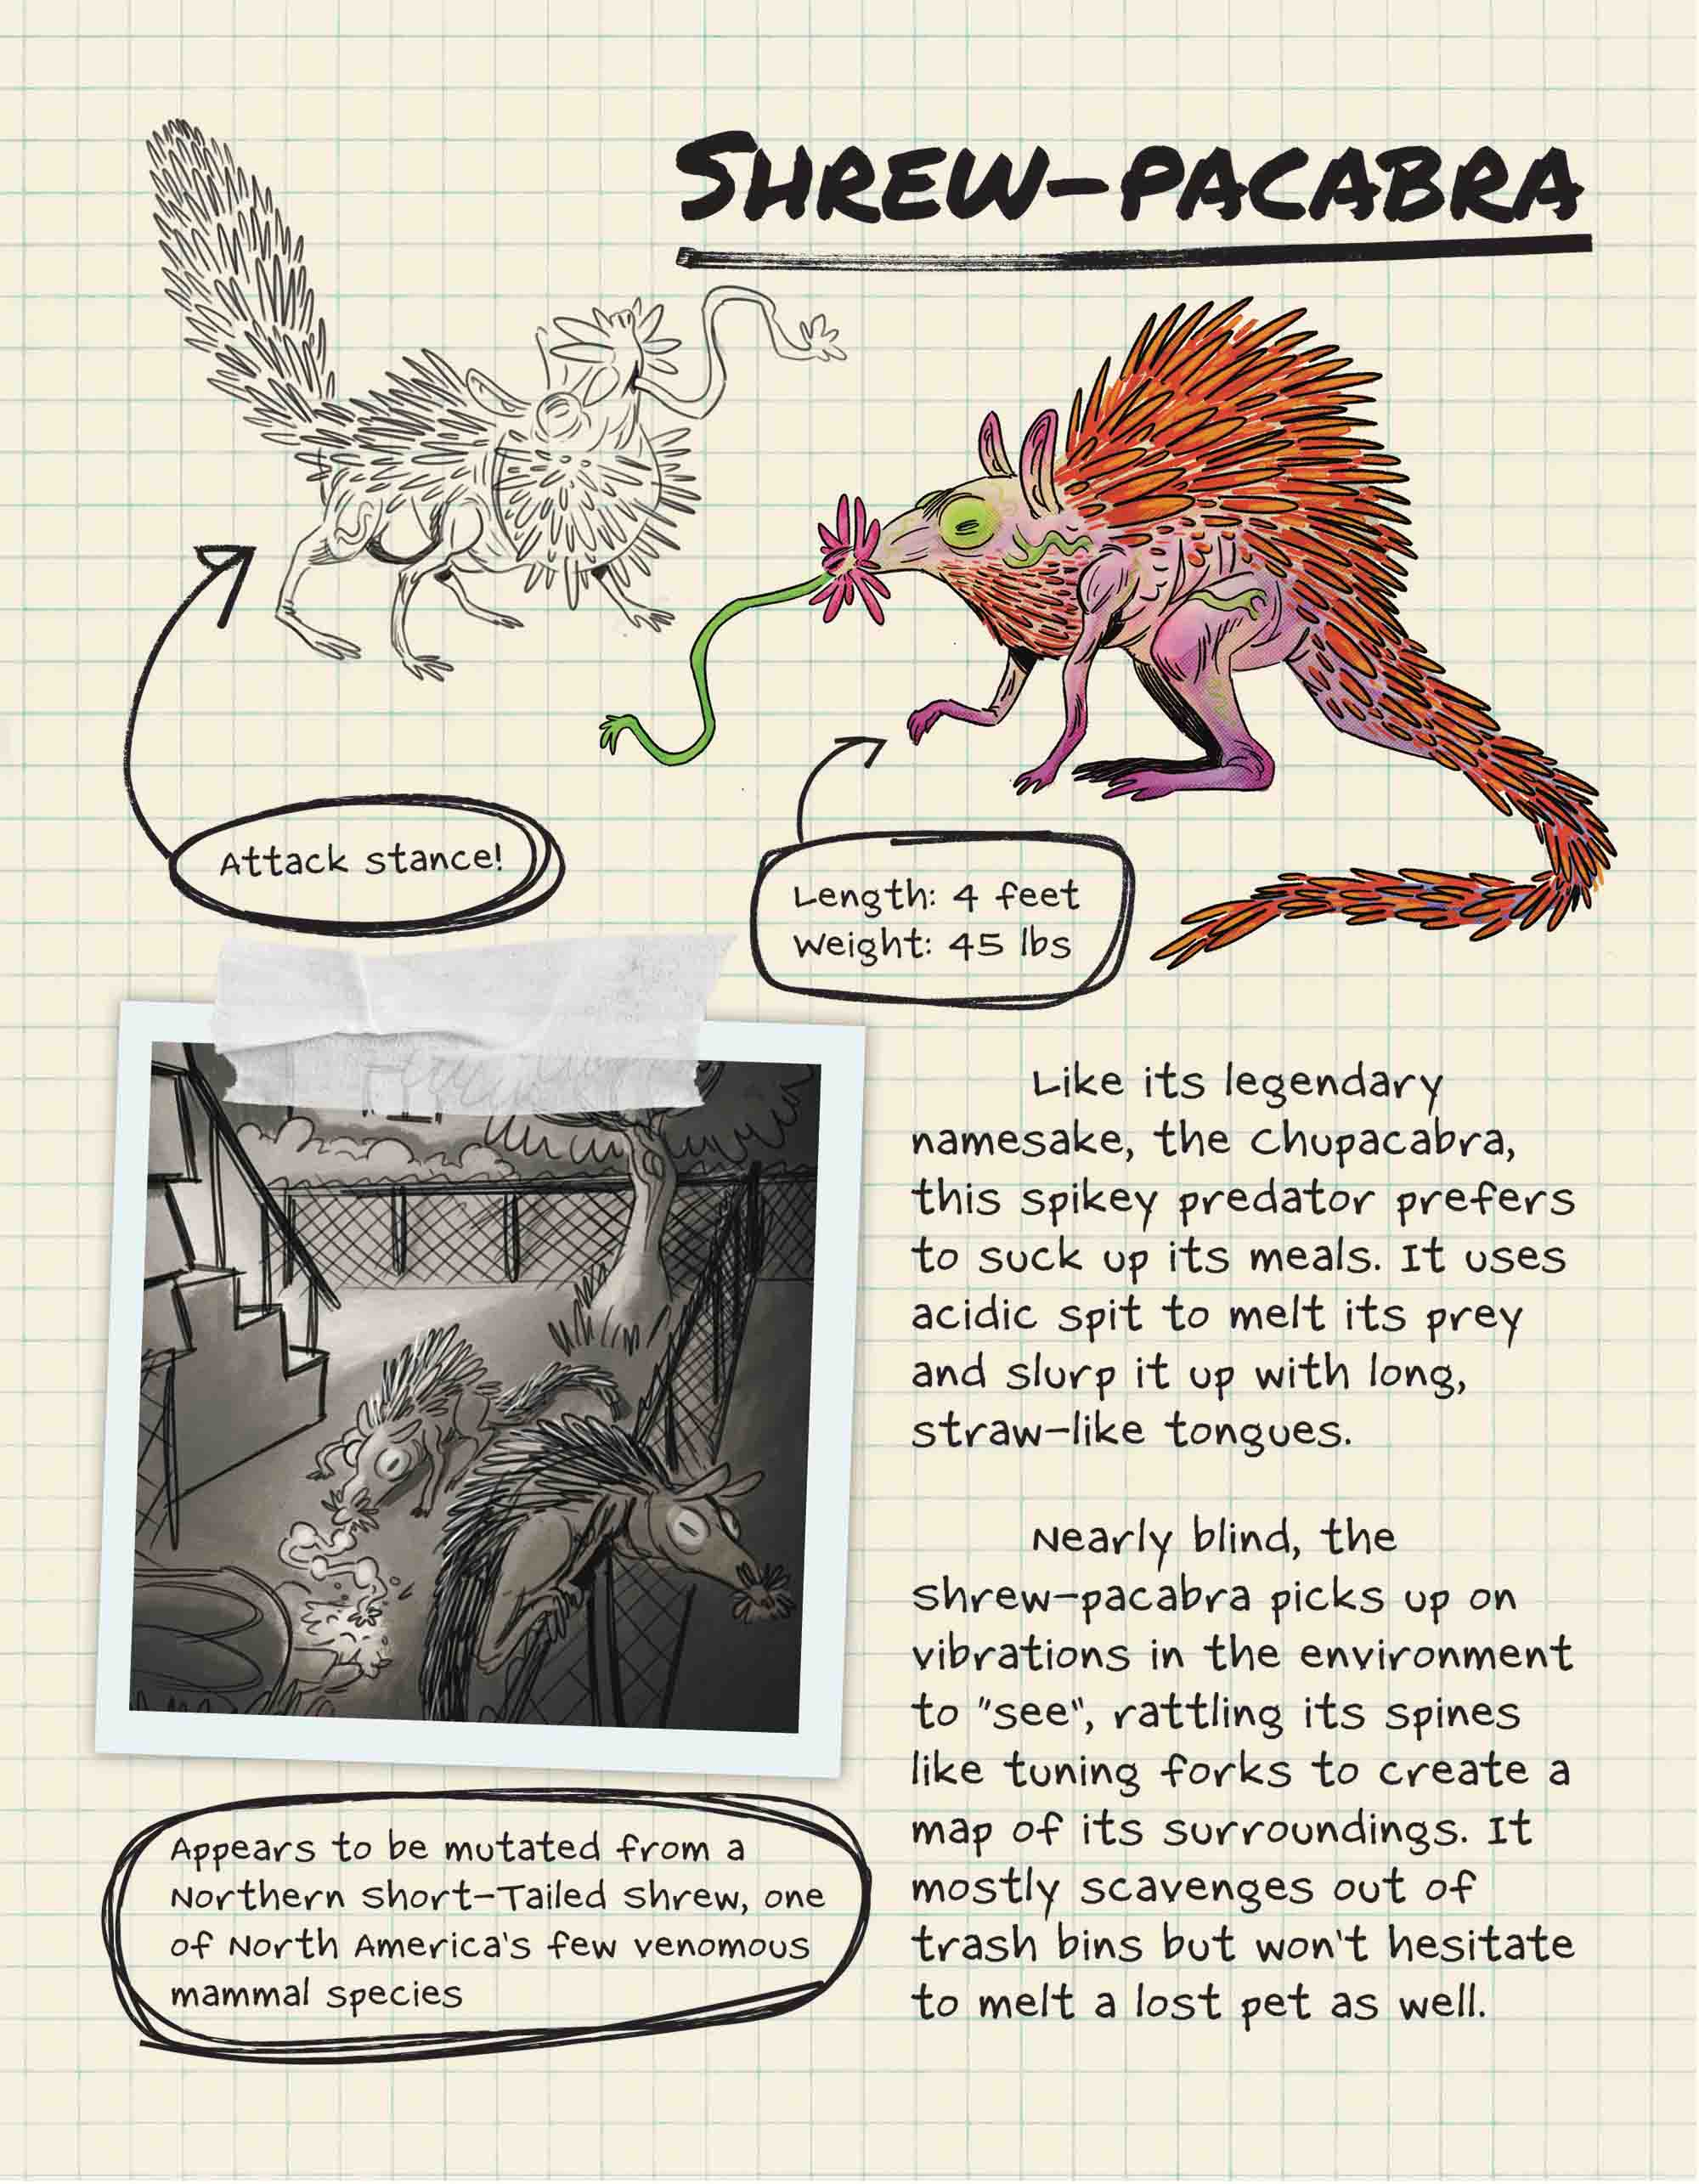 SHREW-PACABRA
Attack stance!
Length: 4 feet
Weight: 45 lbs
Like its legendary
namesake, the Chupacabra,
this spikey predator prefers
to suck up its meals. It uses
acidic spit to melt its prey
and slurp it up with long,
straw-like tongues.
Nearly blind, the
shrew-pacabra picks up on
vibrations in the environment
to "see", rattling its spines
like tuning forks to create a
map of its surroundings. It
mostly scavenges out of
trash bins but won't hesitate
to melt a lost pet as well.
Appears to be mutated from a
Northern Short-Tailed Shrew, one
of North America's few venomous
mammal species